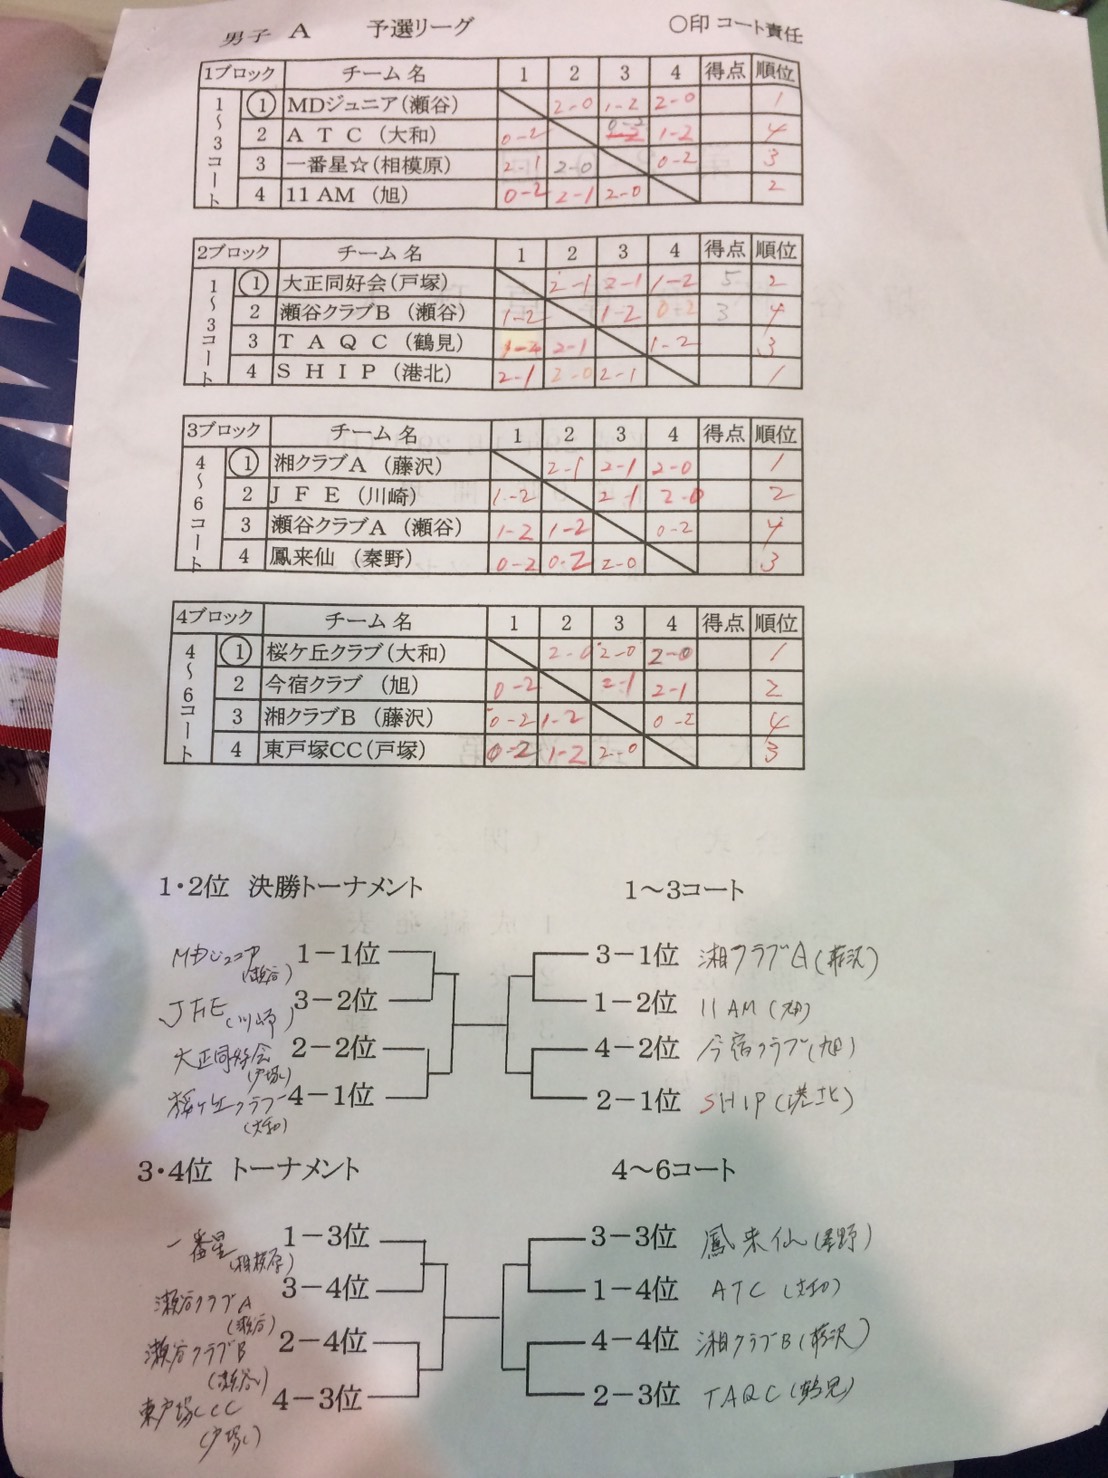 男子 A 予選リーグ ○印 コート責任
1ブロック チーム名 1 2 3 4 得点 順位
1～3コート
① MDジュニア(瀬谷) 2-0 1-2 2-0 1
2 ATC (大和) 0-2 0-2 1-2 4
3 一番星☆(相模原) 2-1 2-0 0-2 3
4 11AM (旭) 0-2 2-1 2-0 2
2ブロック チーム名 1 2 3 4 得点 順位
1～3コート
① 大正同好会(戸塚) 2-1 2-1 1-2 5 2
2 瀬谷クラブB (瀬谷) 1-2 1-2 0-2 3 4
3 TAQC (鶴見) 1-2 2-1 1-2 3
4 SHIP (港北) 2-1 2-0 2-1 1
3ブロック チーム名 1 2 3 4 得点 順位
4～6コート
① 湘クラブA (藤沢) 2-1 2-1 2-0 1
2 JFE (川崎) 1-2 2-1 2-0 2
3 瀬谷クラブA (瀬谷) 1-2 1-2 0-2 4
4 鳳来仙 (秦野) 0-2 0-2 2-0 3
4ブロック チーム名 1 2 3 4 得点 順位
4～6コート
① 桜ケ丘クラブ(大和) 2-0 2-0 2-0 1
2 今宿クラブ (旭) 0-2 2-1 2-1 2
3 湘クラブB (藤沢) 0-2 1-2 0-2 4
4 東戸塚CC(戸塚) 0-2 1-2 2-0 3
1・2位 決勝トーナメント 1～3コート
MDジュニア(瀬谷) 1－1位 3－1位 湘クラブA(藤沢)
JFE(川崎) 3－2位 1－2位 11AM(旭)
大正同好会(戸塚) 2－2位 4－2位 今宿クラブ(旭)
桜ケ丘クラブ(大和) 4－1位 2－1位 SHIP(港北)
3・4位 トーナメント 4～6コート
一番星(相模原) 1－3位 3－3位 鳳来仙(秦野)
瀬谷クラブA(瀬谷) 3－4位 1－4位 ATC(大和)
瀬谷クラブB(瀬谷) 2－4位 4－4位 湘クラブB(藤沢)
東戸塚CC(戸塚) 4－3位 2－3位 TAQC(鶴見)